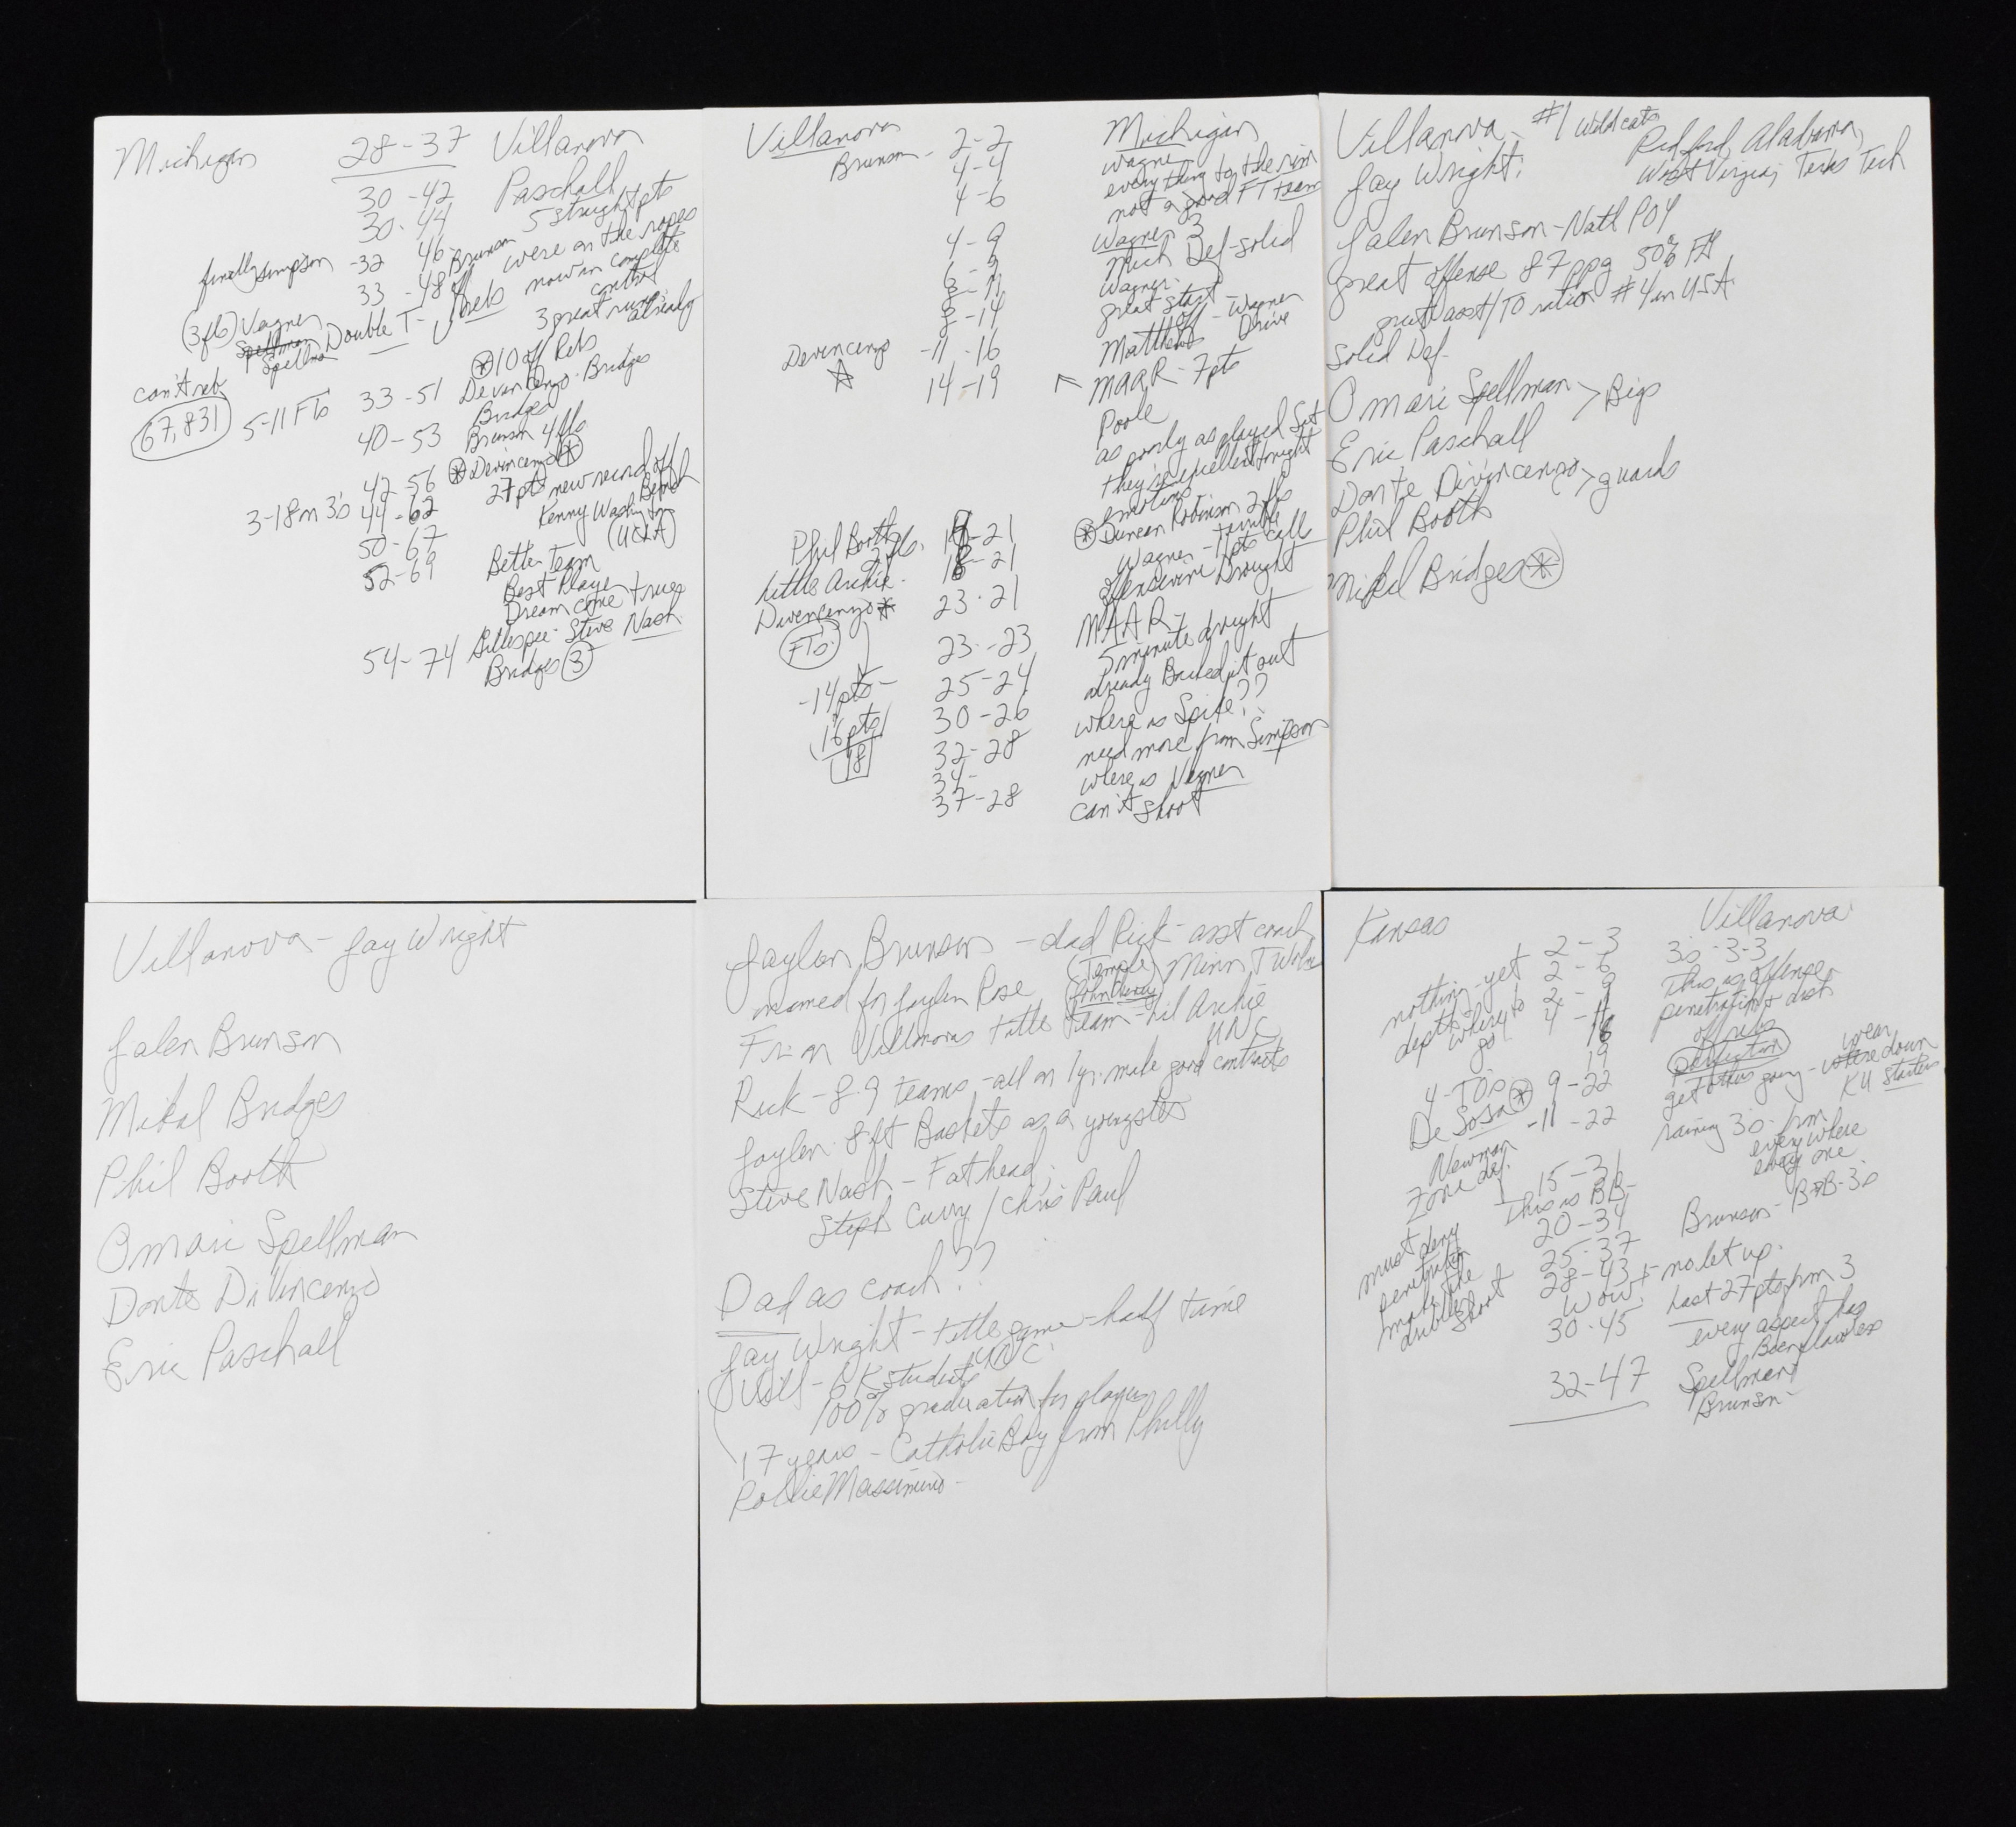 Michigan 28-37 Villanova
30-42 Paschall
30-44 5 straight pts
finally Simpson -32 46 Brunson were on the ropes
33 -48 off rebs now in complete control
(3fls) Wagner Double T - 3 great runs already
Spellman
Spellman
⊛ 10 off Rebs
can't reb
67,831 5-11 FTs 33-51 Devincenzo - Bridges
Bridges
40-53 Brunson 4 fls
42-56 ⊛ Devincenzo ⊛
3-18 in 3's 44-62 27 pts new record off Bench
50-67 Kenny Washington (UCLA)
52-69 Better Team
Best Player
Dream come true
54-74 Gillespie - Steve Nash
Bridges (3)
Villanova 2-2 Michigan
Brunson - 4-4 Wagner
4-6 everything to the rim
not a good FT team
4-9 Wagner 3
Mich Def-solid
6-9 Wagner
8-11 great start
8-14 off - Wagner
Devincenzo -11-16 Matthews Drive
14-19 MAAR - 7 pts
Poole
as poorly as played Sat
they're excellent tonight
emotions
⊛ Duncan Robinson 2 fls
Phil Booth 2 fls. 14-21 Wagner - 11 pts terrible call
little Archie - 18-21 offensive Drought
Divencenzo * 23-21 MAAR -
FTs 23-23 5 minute drought
-14 pts - 25-24 already Bailed it out
16 pts 30-26 where is Spike??
18 32-28 need more from Simpson
34- where is Wagner
37-28 can't shoot
Villanova #1 Wildcats
Radford, Alabama,
West Virginia, Texas Tech
Jay Wright:
Jalen Brunson - Natl POY
great offense 87 ppg 50% FG
great asst/TO ratio #4 in USA
Solid Def-
Omari Spellman > Bigs
Eric Paschall
Donte Divincenzo > guards
Phil Booth
Mikal Bridges ⊛
Villanova - Jay Wright
Jalen Brunson
Mikal Bridges
Phil Booth
Omari Spellman
Donte DiVincenzo
Eric Paschall
Jaylen Brunson - dad Rick - asst coach
(Temple) Minn T Wolves
named for Jaylen Rose (John Chaney)
Fr. on Villanovas title team - lil Archie
UNC
Rick - 8-9 teams - all on 1 yr. make good contracts
Jaylen - 8 ft Baskets as a youngster
Steve Nash - Fathead;
Steph Curry / Chris Paul
Dad as coach??
Jay Wright - title game - half time
UNC
Vill - 6K students
100% graduation for players
17 years - Catholic Boy from Philly
Rollie Massimino -
Kansas Villanova
2-3 3s-3-3
nothing yet 2-6 This is offense
depth 2-9 penetration + dish
where to go 4-14 off rebs
16 perfection
19 get others going - wear down
4-TO's 9-22 KU starters
De Sosa ⊛ -11-22 raining 3s from
Newman everywhere
zone def. 15-31 every one
This is BB-
must deny 20-34 Brunson - B+B-3s
penetration 25-37
make the 28-43 + no let up.
dribblers shoot wow! last 27 pts from 3
30-45 every aspect has
Been flawless
32-47 Spellman
Brunson-